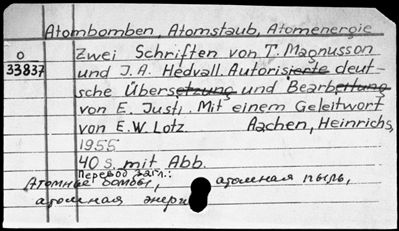 Atombomben, Atomstaub, Atomenergie
O
33837
Zwei Schriften von T. Magnusson
und J. A. Hedvall. Autorisierte deut-
sche Übersetzung und Bearbeitung
von E. Justi. Mit einem Geleitwort
von E. W. Lotz. Aachen, Heinrichs,
1955
40 S. mit Abb.
Перевод загл.:
Атомные бомбы, атомная пыль,
атомная энерг